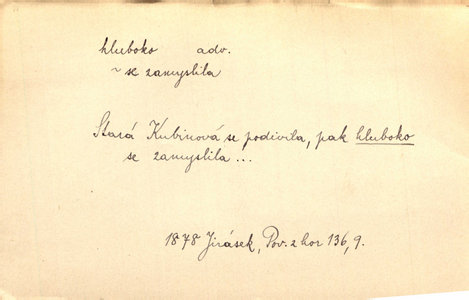 hluboko adv.
~ se zamyslila
Stará Kubinová se podivila, pak hluboko
se zamyslila ...
1878 Jirásek, Pov. z hor 136, 9.